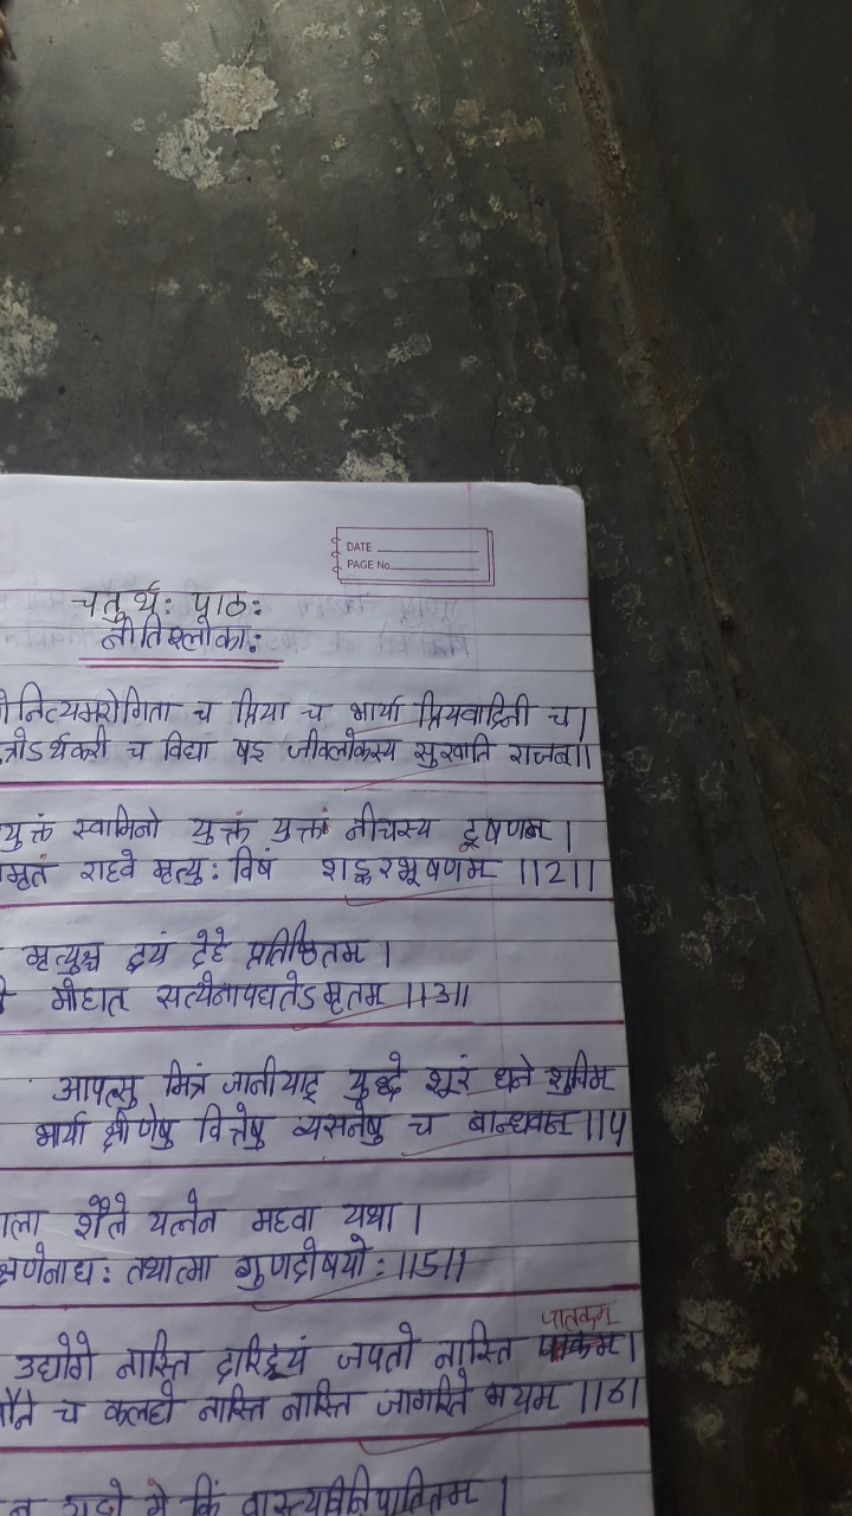 DATE
PAGE No.
चतुर्थ: पाठ:
नीतिश्लोका:
नित्यमरोगिता च प्रिया च भार्या प्रियवादिनी च|
त्रोऽर्थकरी च विद्या षड् जीवलोकस्य सुखानि राजन||
युक्तं स्वामिनो युक्तं युक्तं नीचस्य दूषणम |
मृतं राहवे मृत्यु: विषं शङ्करभूषणम ||2||
मृत्युश्च द्वयं देहे प्रतिष्ठितम |
मोहात् सत्येनापद्यतेऽमृतम ||3||
आपत्सु मित्रं जानीयाद् युद्धे शूरं धने शुचिम
भार्या क्षीणेषु वित्तेषु व्यसनेषु च बान्धवान ||4
ला शैले यत्नेन महवा यथा |
क्षणेनाध: तथात्मा गुणदोषयो: ||5||
पातकम
उद्योगे नास्ति दारिद्र्यं जपतो नास्ति |
मौने च कलहो नास्ति नास्ति जागरिते भयम ||6|